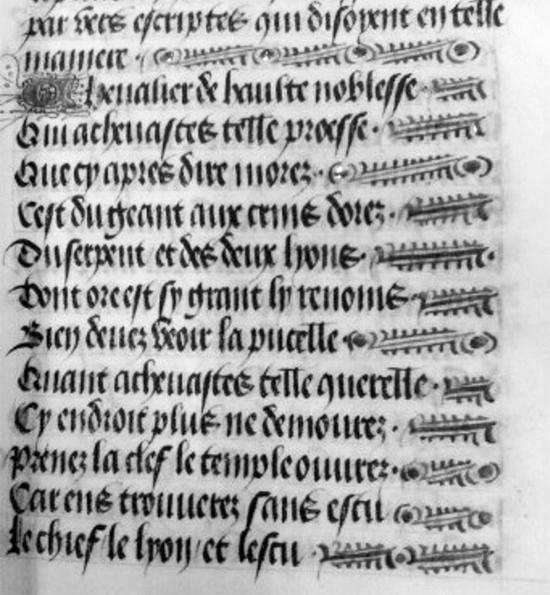 par vers escriptes qui disoyent en telle
maniere
Chevalier de haulte noblesse
Qui achevastes telle proesse
Que cy apres dire morez
Cest du geant aux crins dorez
Du serpent et des deux lyons
Dont ore est sy grant ly renoms
Bien devez veoir la pucelle
Quant achevastes telle querelle
Cy endroit plus ne demourez
Prenez la clef le temple ouvrez
Car ens trouverez sans escu
Le chief le lyon et lescu